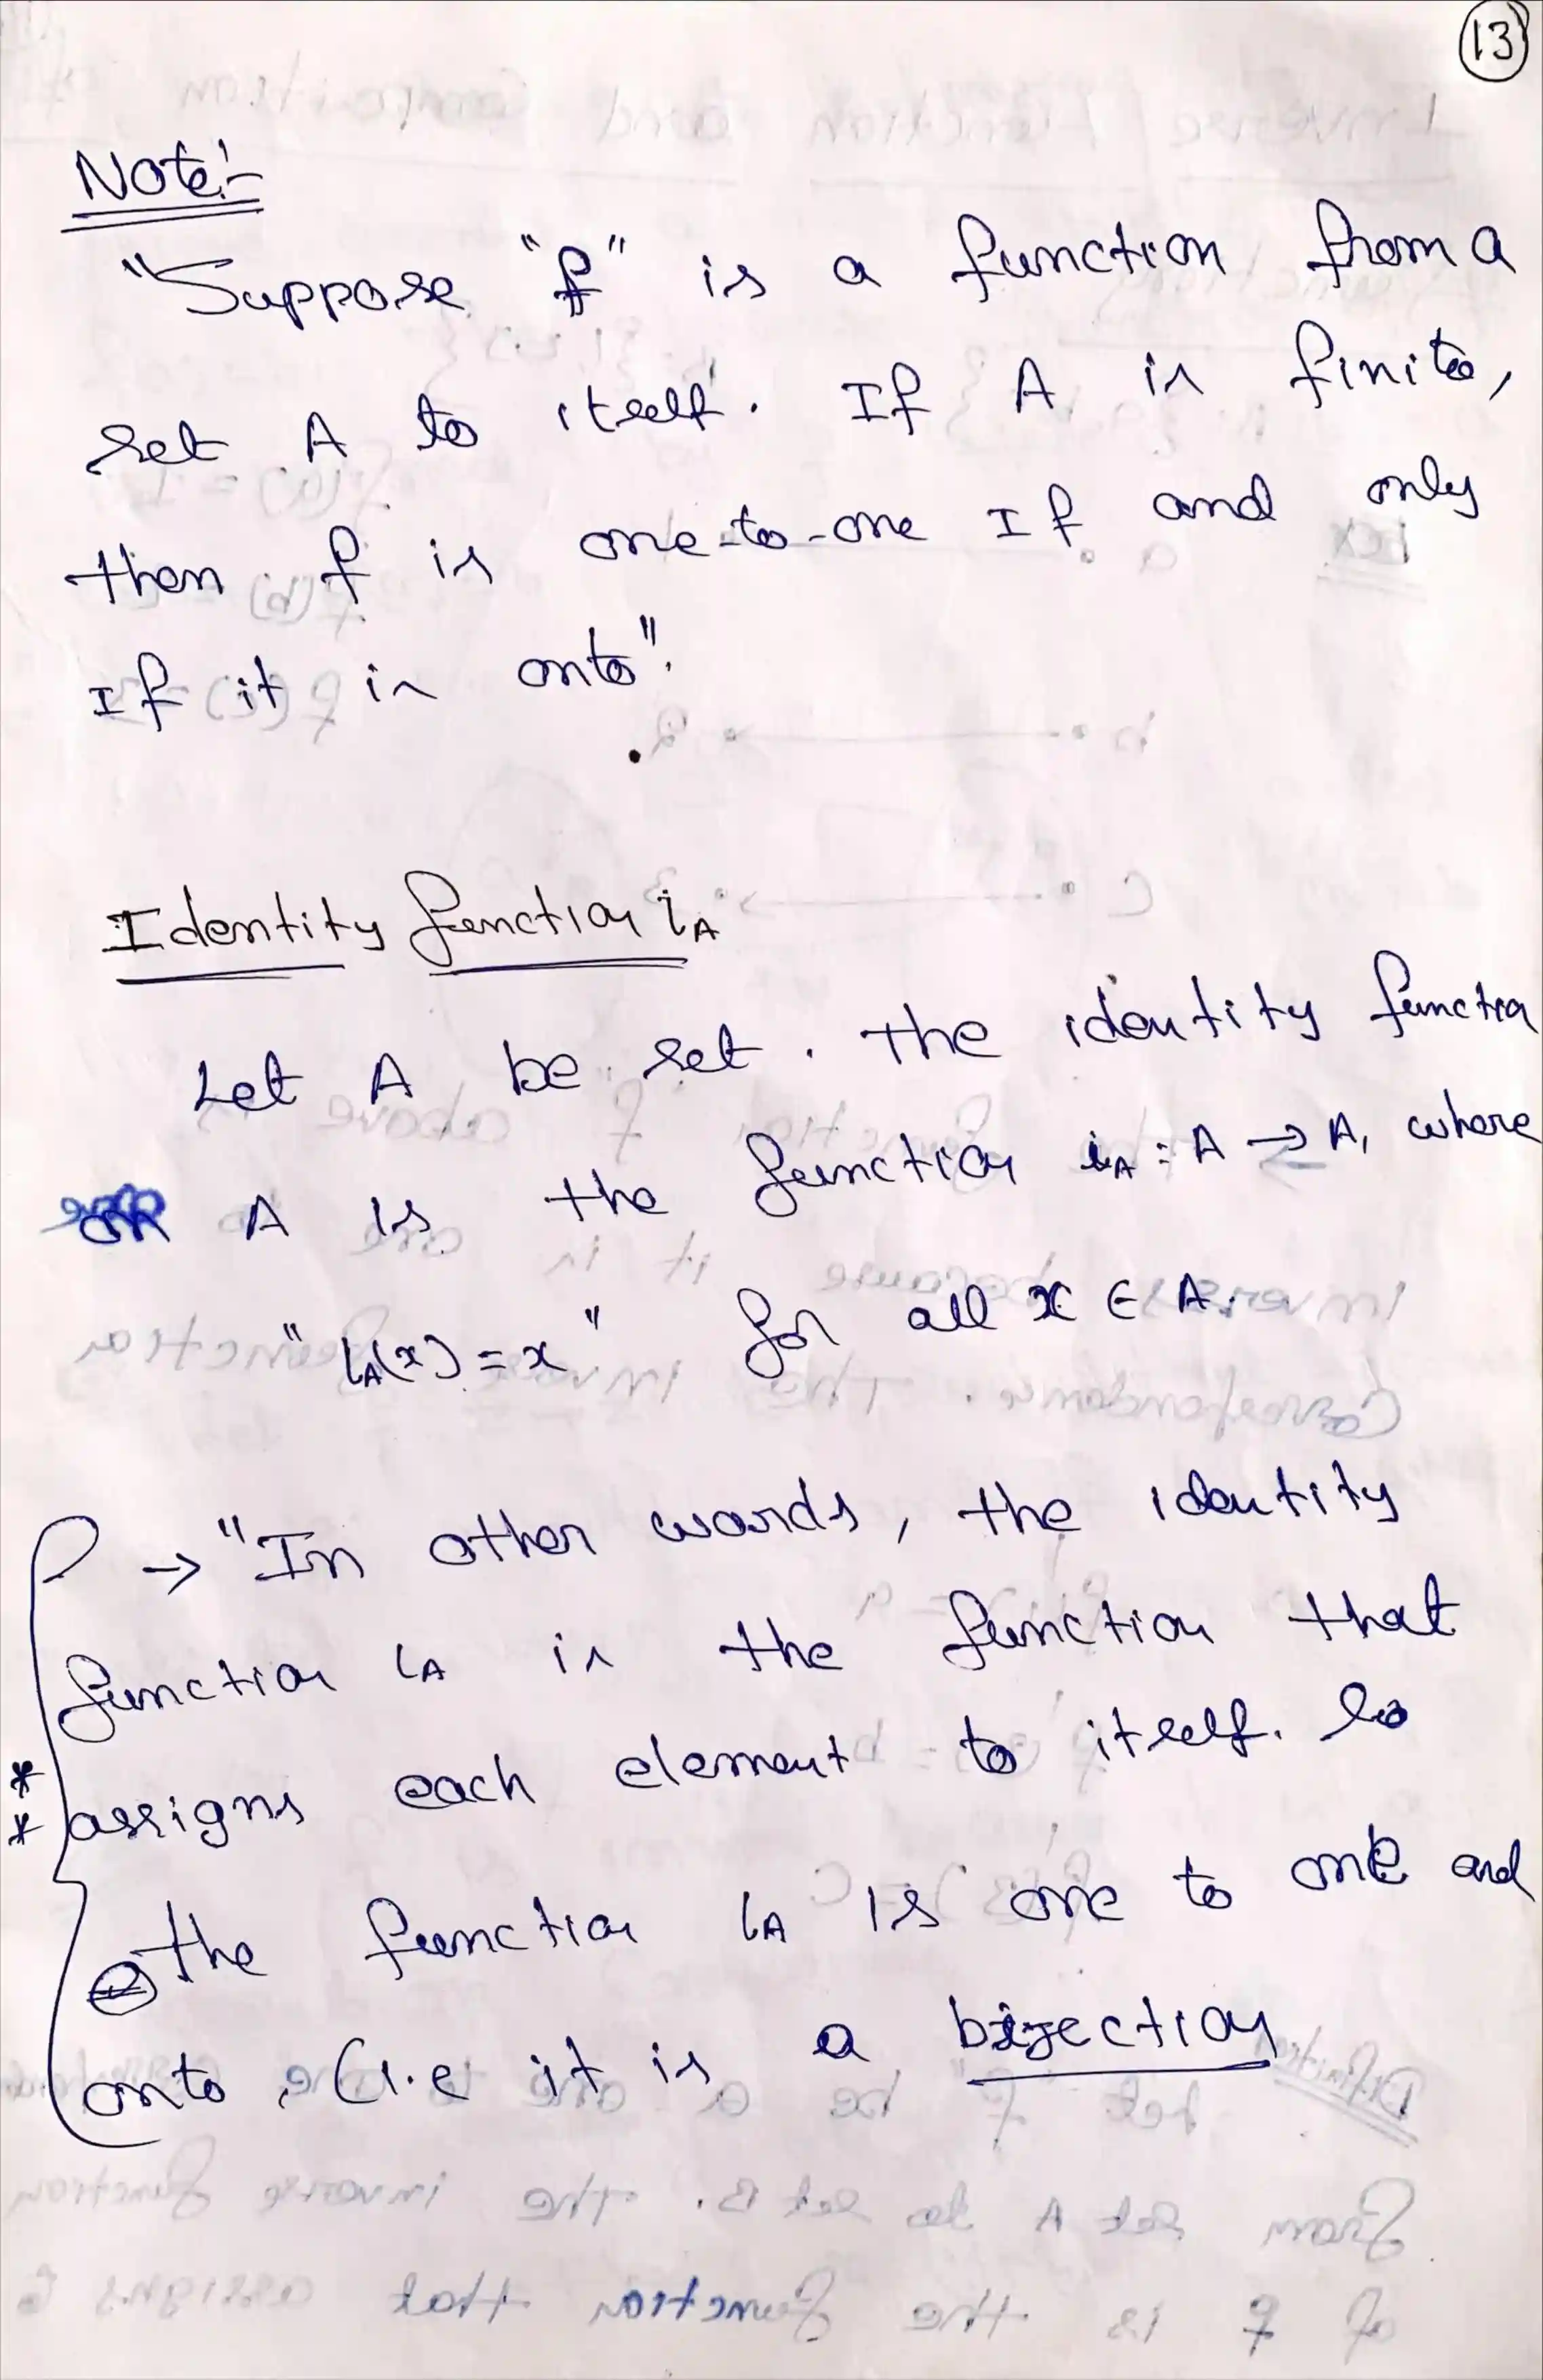 13
Note:-
"Suppose "f" is a function from a
set A to itself. If A is finite,
then f is one-to-one If and only
If it is onto".
Identity function iA
Let A be set. The identity function
on A is the function iA : A → A, where
"iA(x) = x" for all x ∈ A.
→ "In other words, the identity
function iA is the function that
* assigns each element to itself. So
* the function iA is one to one and
onto, (i.e it is a bijection